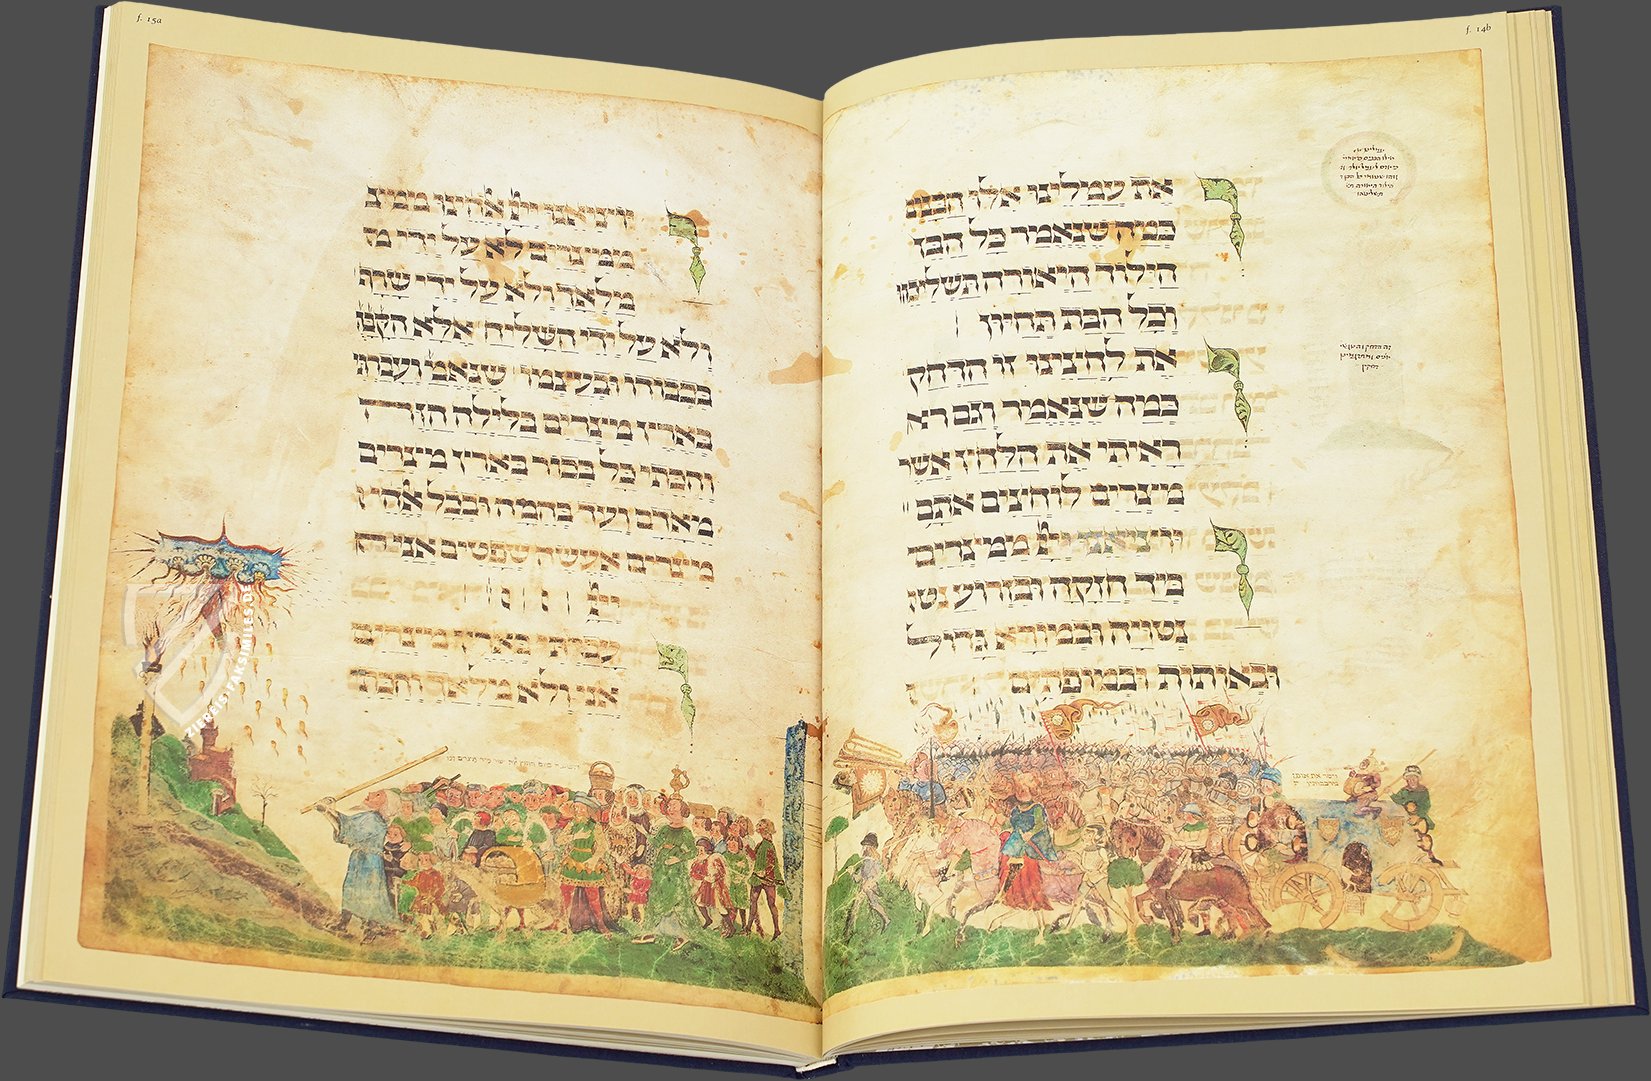 f. 14b
את עמלינו אלו הבנים
כמה שנאמר כל הבן
הילוד היאורה תשליכוהו
וכל הבת תחיון
את לחצינו זו הדחק
כמה שנאמר וגם רא
ראיתי את הלחץ אשר
מצרים לוחצים אתם
ויוציאנו ממצרים
ביד חזקה ובזרוע נטו
נטויה ובמורא גדול
ובאותות ובמופתים
ויסר את אופן
מרכבותיו
f. 15a
ויוציאנו אלהינו ממצ
ממצרים לא על ידי מ
מלאך ולא על ידי שרף
ולא על ידי השליח אלא הקב
בכבודו ובעצמו שנאמ ועברתי
בארץ מצרים בלילה הזה
והכתי כל בכור בארץ מצרים
מאדם ועד בהמה ובכל אלהי
מצרים אעשה שפטים אני
יי
עברתי בארץ מצרים
אני ולא מלאך והכתי
ZIEREIS FAKSIMILES.DE